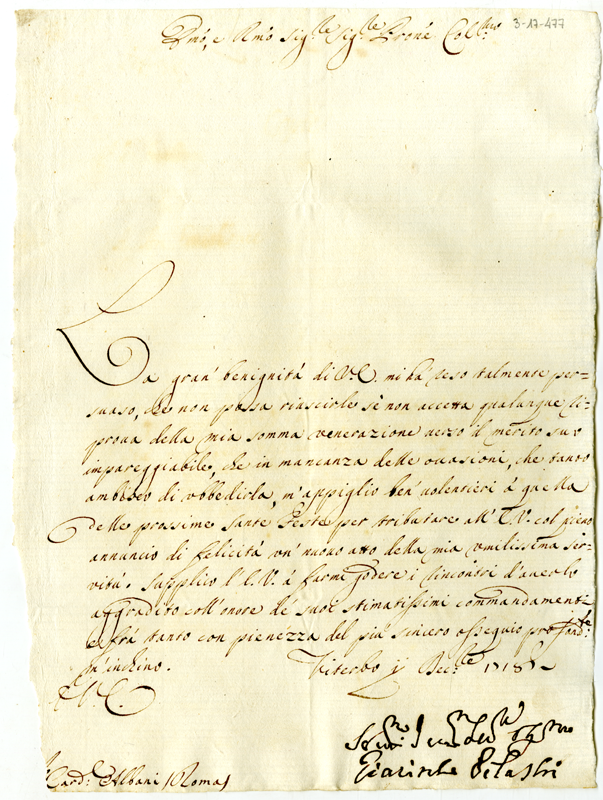 3-17-477
Emo, e Rmo Sig.re Sig.re Prone Col.mo
La gran' benignità di V.E. mi hà reso talmente per=
suaso, che non possa riuscirle se non accetta qualunque ri=
prova della mia somma venerazione verso il merito suo
impareggiabile, che in mancanza delle occasioni, che tanto
ambisco di ubbedirla, m'appiglio ben' volentieri à quella
delle prossime Sante Feste per tributare all' E.V. col pieno
annuncio di felicità un' nuovo atto della mia umilissima ser=
vitù. Supplico l'E.V. à farmi godere i rincontri d'averlo
aggradito coll'onore de' suoi stimatissimi commandamenti
e frà tanto con pienezza del più sincero ossequio profond.te
m'inchino. Viterbo Dec.bre 1718
V.E.
Card. Albani / Roma /